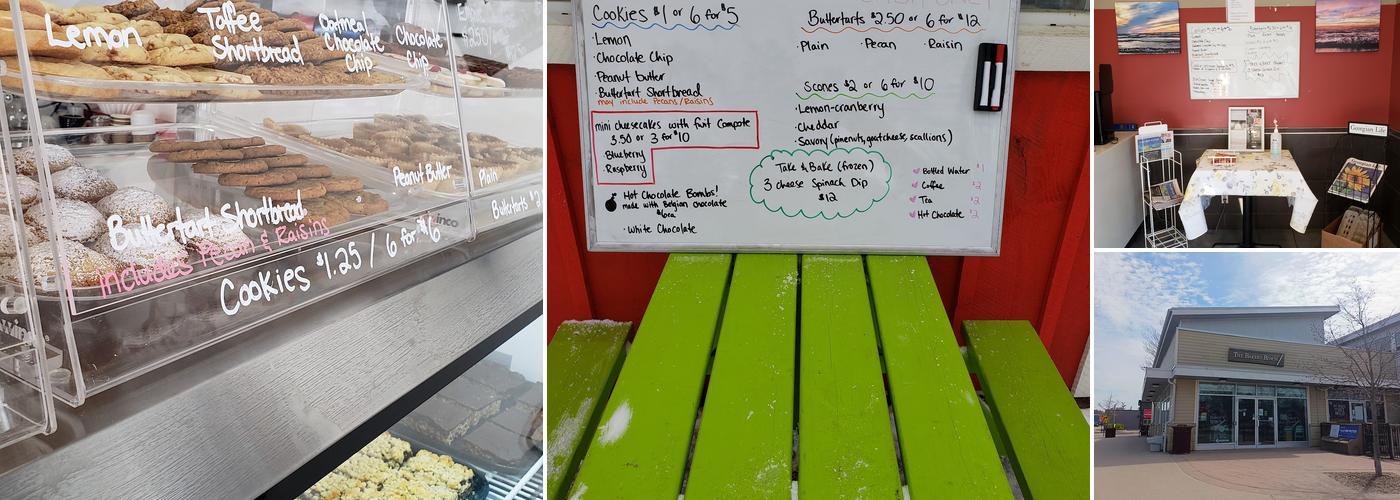 Lemon
Toffee
Shortbread
Oatmeal
Chocolate
Chip
Chocolate
Chip
Peanut Butter
Plain
Buttertart Shortbread
includes Pecan & Raisins
Cookies $1.25 / 6 for $6
Buttertarts $2
Cookies $1 or 6 for $5
· Lemon
· Chocolate Chip
· Peanut butter
· Buttertart Shortbread
may include Pecans/Raisins
mini cheesecakes with fruit Compote
3.50 or 3 for $10
· Blueberry
· Raspberry
Hot Chocolate Bombs!
made with Belgian chocolate
$6ea
· White Chocolate
Buttertarts $2.50 or 6 for $12
· Plain · Pecan · Raisin
Scones $2 or 6 for $10
· Lemon-cranberry
· Cheddar
· Savory (pinenuts, goatcheese, scallions)
Take & Bake (frozen)
3 cheese Spinach Dip
$12
Bottled Water $1
Coffee $2
Tea $2
Hot Chocolate $2
Georgian Life
The Baked Room